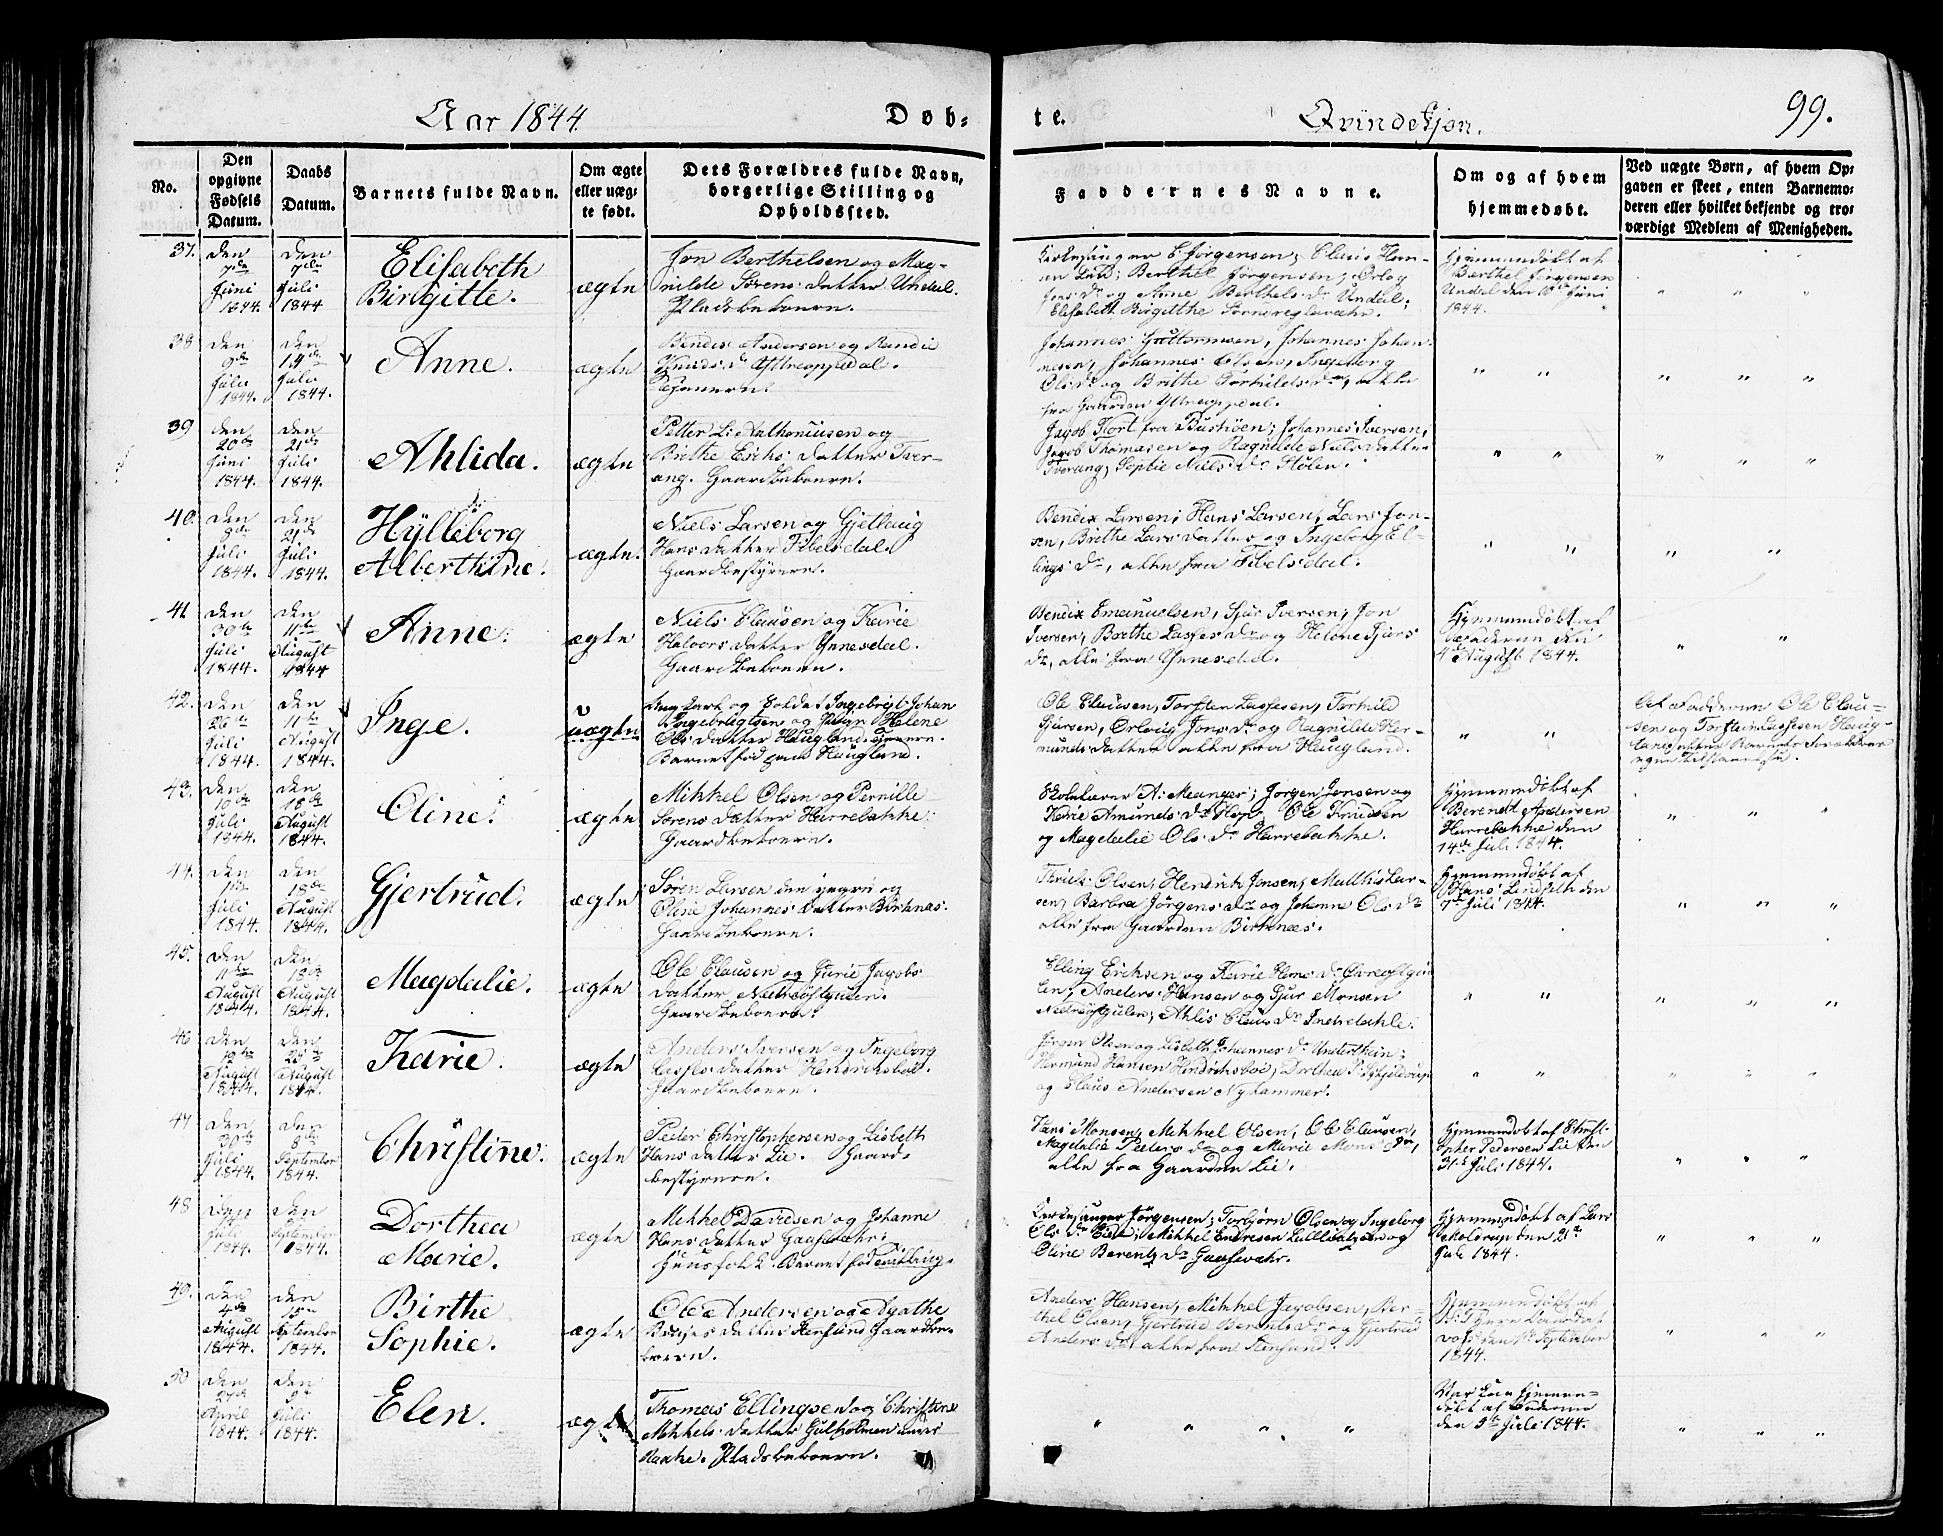 Aar 1844.
Døb-
te.
Qvindekjøn.
99.
No.
Den
opgivne
Fødsels
Datum.
Daabs
Datum.
Barnets fulde Navn.
Om ægte
eller uæg-
te født.
Dets Forældres fulde Navn,
borgerlige Stilling og
Opholdssted.
Faddernes Navne.
Om og af hvem
hjemmedøbt.
Ved uægte Børn, af hvem Op-
gaven er skeet, enten Barnemo-
deren eller hvilket bekjendt og tro-
værdigt Medlem af Menigheden.
37.
den
7de
Juni
1844.
den
7de
Juli
1844
Elisabeth
Birgitte.
ægte
Jon Berthelsen og Mag-
nilde Sørens datter Undal.
Pladsbeboere.
Kirkesanger C Jørgensen; Claus Han-
sen Lund; Berthel Jørgensen,
Jons Dr og Anne Berthels Dr Undal;
Elisabeth Birgitthe
Hjemmedøbt af
Berthel Jørgensen
Undal den Juni
1844.
38
den
9de
Juli
1844.
den
14de
Juli
1844.
Anne.
ægte
Bendix Andersen og Randie
Knuds Dr Yttreoppedal.
Johannes Guttormsen, Johannes Johan-
nesen, Johannes Olsen, Ingeborg
Ols Dr og Brithe Torkilds Dr, alle
fra Gaarden Yttreoppedal.
39
den
20de
Juni
1844.
den
21de
Juli
1844.
Ahlida.
ægte
Petter L: Anthoniusen og
Brithe Erichs datter Tver-
ang. Gaardbeboere.
Jacob Kort fra Buskøen; Johannes Iversen,
Jacob Thomasen og Ragnilde Niels datter
Tverang, Sophie Niels Dr Stølen.
40.
den
9de
Juli
1844.
den
21de
Juli
1844.
Hylleborg
Alberthine.
ægte.
Niels Larsen og Gjetlaug
Hans datter Tibelsdal.
Gaardbestyrere.
Bendix Larsen; Hans Larsen, Lars Jon-
sen, Brithe Lars datter og Ingeborg El-
lings Dr, alle fra Tibelsdal.
41
den
30te
Juli
1844.
den
11te
August
1844
Anne.
ægte
Niels Clausen og Karie
Halvors datter Ynnesdal.
Gaardbeboere.
Bendix Emanuelsen, Sjur Iversen, Jon
Iversen, Barthe Lasses Dr og Helene Sjurs
Dr, alle fra Ynnesdal.
Hjemmedøbt af
Faderen den
4de August 1844.
42.
den
26te
Juli
1844.
den
11te
August
1844.
Inge.
uægte
Ungkarl og Soldat Ingebrigt Johan
Ingebrigtsen og Pigen Helene
Ols datter Haugland.
Barnet fød paa Haugland.
Ole Clausen, Torsten Lassesen, Torkild
Sjursen, Ørlaug Jons Dr og Ragnilde Her-
munds datter alle fra Haugland.
Af Fadderen Ole Clau-
sen og Torstein Lassesen Haug-
land efter Barnets Forældres
egen Tilstaaelse.
43.
den
10de
Juli
1844.
den
18de
August
1844.
Oline.
ægte
Mikkel Olsen og Pernille
Sørens datter Harrebakke.
Gaardbeboere.
Skolelærer A: Meanger; Jørgen Jonsen og
Karie Amunds Dr Hop; Ole Knudsen
og Magdalie Ols Dr Harrebakke.
Hjemmedøbt af
Berendt Andersen
Harrebakke den
14de Juli 1844.
44.
den
1ste
Juli
1844.
den
18de
August
1844.
Gjertrud.
ægte
Søren Larsen den yngre og
Oline Johannes datter Birknæs.
Gaardbeboere.
Thrich Olsen; Hendrik Jonsen, Matthis Lar-
sen, Barbra Jørgens Dr og Johanne Ols Dr
alle fra Gaarden Birknæs.
Hjemmedøbt af
Hans Lindseth den
7de Juli 1844.
45.
den
11te
August
1844.
den
18de
August
1844.
Magdalie.
ægte
Ole Clausen og Gurie Jacobs
datter Nedreøstgulen.
Gaardbeboere.
Elling Ericksen og Karie Hans Dr Øvreøstgu-
len; Anders Hansen og Sjur Monsen
Nedreøstgulen; Ahlis Claus Dr Indredahle.
46
den
12te
August
1844.
den
25te
August
1844.
Karie.
ægte
Anders Iversen og Ingeborg
Lasses datter Hendriksbøe.
Gaardbeboere.
Jørgen Olsen og Lisbeth Johannes Dr Understhein;
Hermund Hansen Hindriksbøe; Dorthea
og Claus Andersen Nyhammer.
47
den
30te
Juli
1844.
den
8de
September
1844.
Christine.
ægte
Peder Christophersen og Lisbeth
Hans datter Lie. Gaard-
bestyrere.
Hans Monsen, Mikkel Olsen, Ole Clausen,
Magdalie Peders Dr og Marie Mons Dr,
alle fra Gaarden Lie.
Hjemmedøbt af Christ-
opher Pedersen Lie den
31te Juli 1844.
48
den
14
Juli
1844.
den
September
1844.
Dorthea
Marie.
ægte
Mikkel Davidsen og Johanne
Hans datter Gaasevær;
Huusfolk. Barnet fød
Kirkesanger Jørgensen; Torbjørn Olsen og Ingeborg
Ols Dr Eide; Mikkel Endresen og
Oline Berents Dr Gaasevær.
Hjemmedøbt af Lars
Moldrup den 21de
Juli 1844.
49.
den
4de
August
1844.
den
September
1844.
Birthe
Sophie.
ægte
Ole Andersen og Agathe
Børges datter Stensund Gaardbe-
boere.
Anders Hansen, Mikkel Jacobsen, Ber-
thel Olsen, Gjertrud Berents Dr og Gjertrud
Anders Dr, alle fra Stensund.
Hjemmedøbt af
September
1844.
50
den
April
1844.
den
Juli
1844.
Elen.
ægte
Thomas Ellingsen og Christine
Mikkels datter Gulholmen under
Naake. Pladsbeboere.
Var kun hjemme-
døbt af Faderen
den 9de Juli 1844.